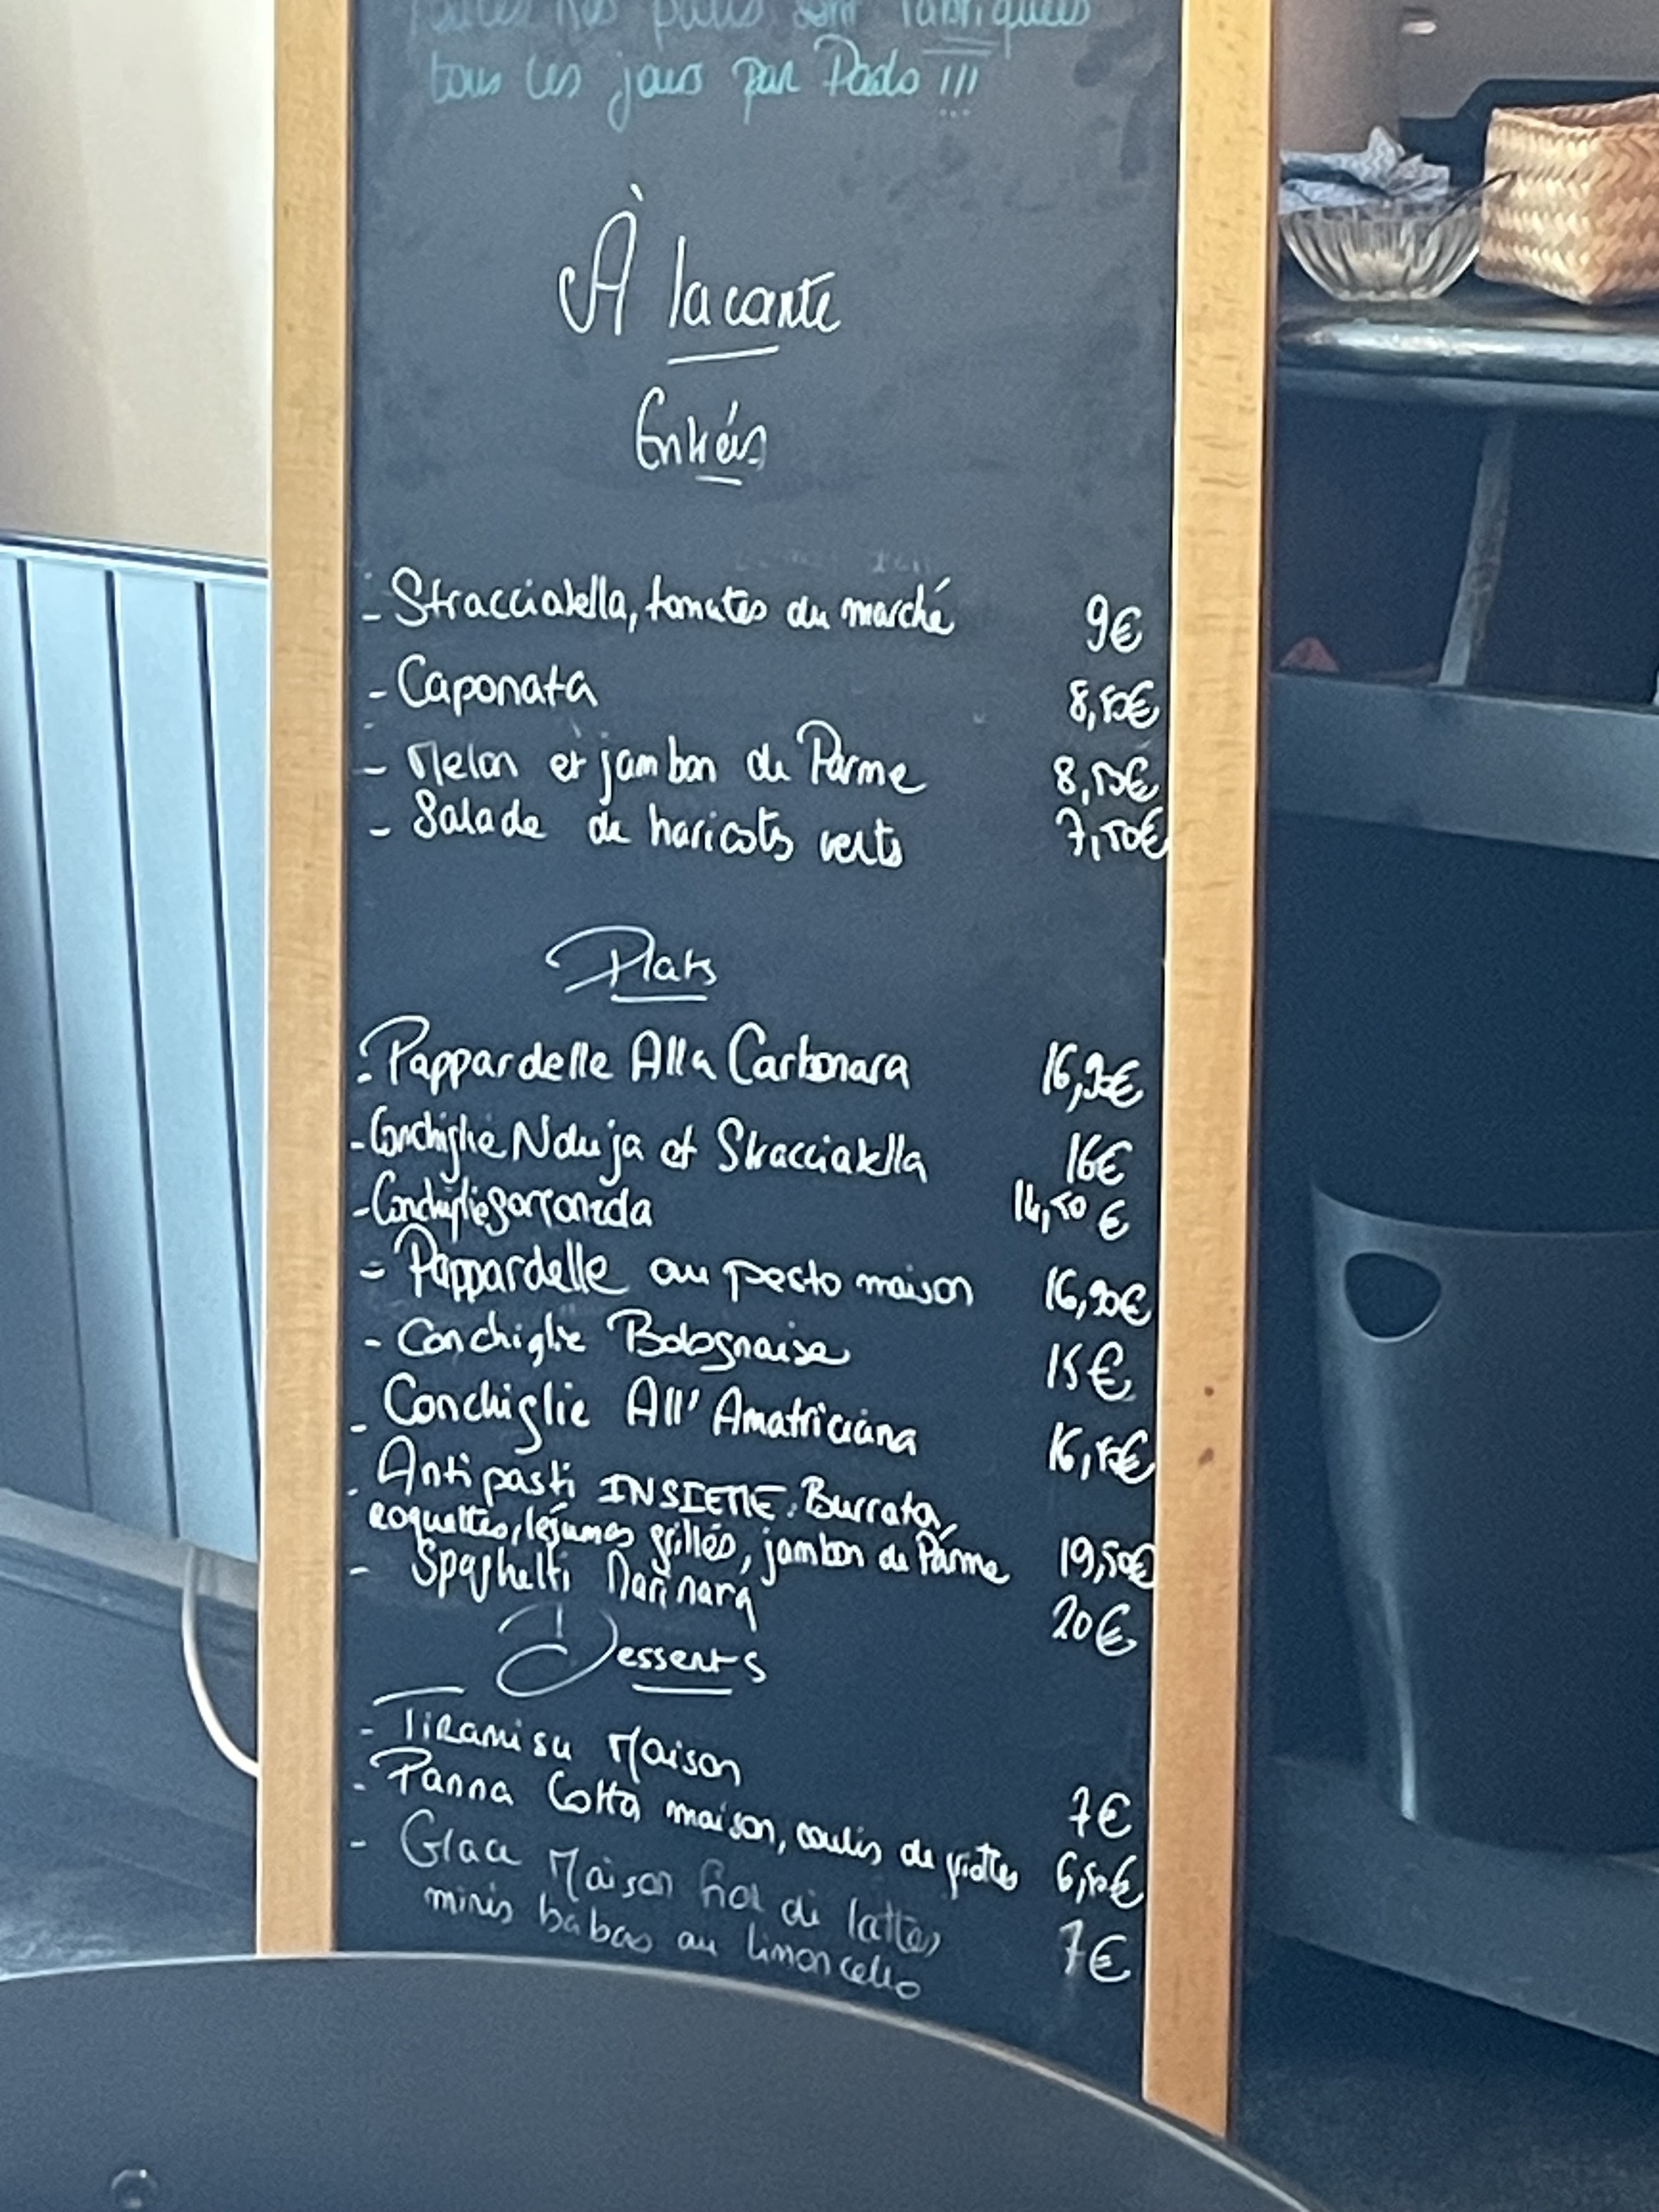 Toutes nos pâtes sont fabriquées
tous les jours par Paolo !!!
À la carte
Entrées
- Stracciatella, tomates du marché 9€
- Caponata 8,50€
- Melon et jambon de Parme 8,50€
- Salade de haricots verts 7,50€
Plats
- Pappardelle Alla Carbonara 16,90€
- Conchiglie Nduja et Stracciatella 16€
- Conchiglie sorronada 14,50 €
- Pappardelle au pesto maison 16,90€
- Conchiglie Bolognaise 15€
- Conchiglie All' Amatriciana 16,50€
- Antipasti INSIEME: Burrata,
roquettes, légumes grillés, jambon de Parme 19,50€
- Spaghetti Marinara 20€
Desserts
- Tiramisu Maison 7€
- Panna Cotta maison, coulis de griottes 6,50€
- Glace Maison fior di latte, 7€
minis babas au limoncello